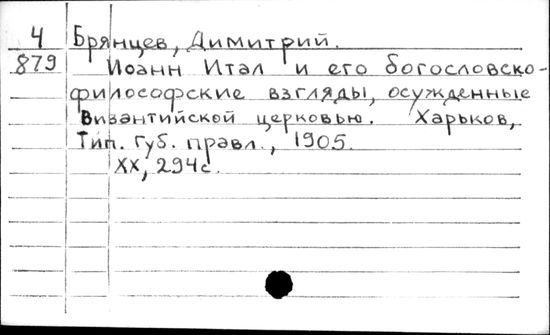 4 Брянцев, Димитрий.
879 Иоанн Итал и его богословско-
философские взгляды, осужденные
Византийской церковью. Харьков,
Тип. Губ. правл., 1905.
XX, 294с.